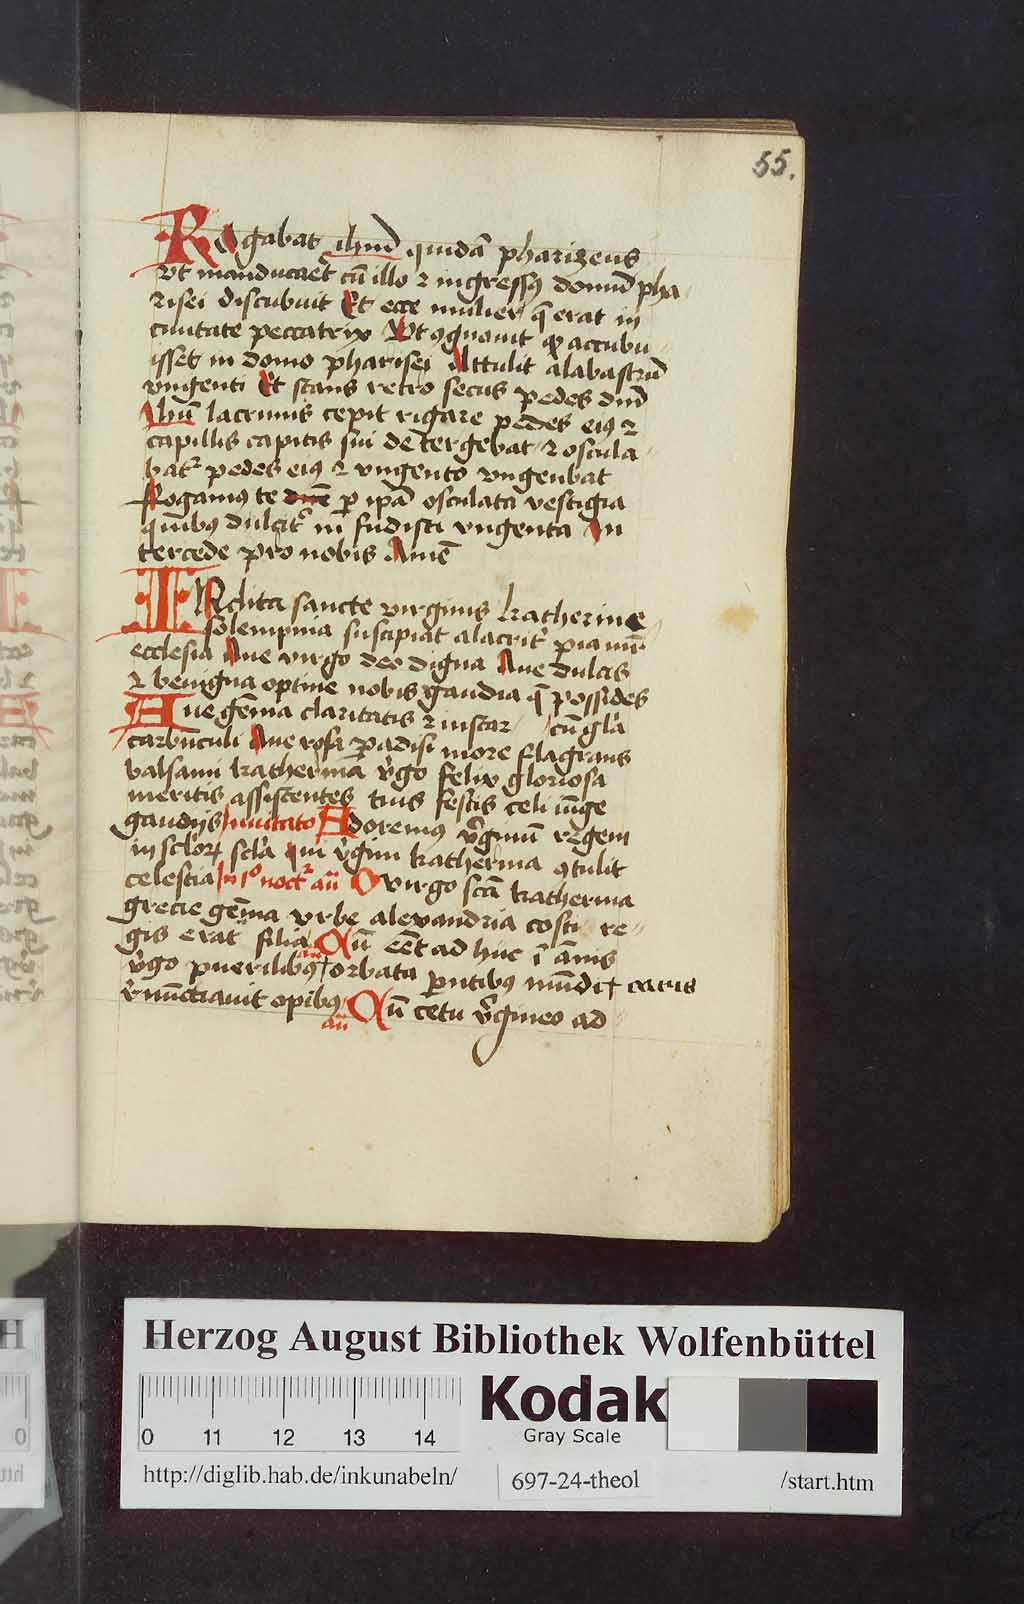 55.
Rogabat ihm̄ quidā pharizeus
vt manducaret cū illo ⁊ ingressꝯ domū pha
risei discubuit Et ecce mulier q̄ erat in
ciuitate peccatrix Vt ꝯgnouit ꝙ accubu
isset in domo pharisei Attulit alabastrū
vngenti Et stans retro secus pedes dn̄i
ihū lacrimis cepit rigare pedes eiꝯ ⁊
capillis capitis sui detergebat ⁊ oscula
bat᷑ pedes eiꝯ ⁊ vngento vngenbat
Rogamꝯ te ꝑ ipā osculata vestigia
quibus dulcit᷑ in fudisti vngenta In
tercede pro nobis Amē
INclita sancte virginis katherine
solempnia suscipiat alacrit᷑ pia
ecclesia Aue virgo deo digna Aue dulcis
⁊ benigna optine nobis gaudia q̄ possides
Aue gēma claritatis ⁊ instar cū gl'a
carbūculi Aue rosa ꝑadisi more flagrans
balsami katherina v̄go felix gloriosa
meritis assistentes tuis festis celi iūge
gaudijs Inuitato Adoremꝯ v̄ginū regem
in sclorꝝ scl'a qui v̄gini katherina ꝯtulit
celestia In 1º noct᷑ an̄ O virgo scā katherina
grecie gēma vrbe alexandria costi re
gis erat filia Cū eēt ad huc ī ānis
an̄
v̄go puerilibꝯ orbata ꝑntibꝯ mūdi caris
r̄nūctiauit opibꝯ Cū cetu v̄gineo ad
an̄
Herzog August Bibliothek Wolfenbüttel
0 11 12 13 14
Kodak
Gray Scale
http://diglib.hab.de/inkunabeln/
697-24-theol
/start.htm